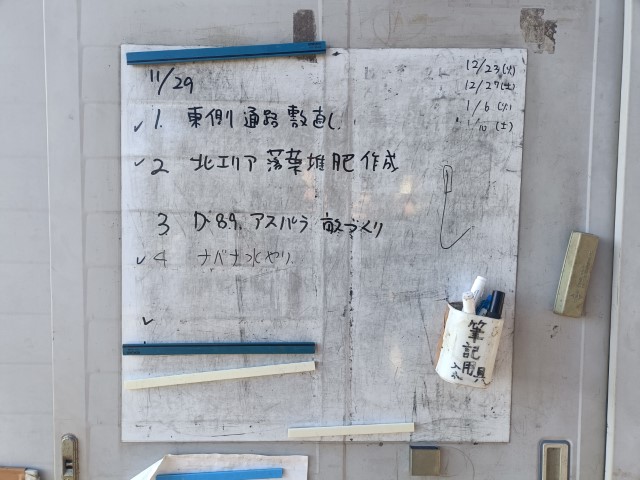 11/29
✓ 1. 東側 通路 敷直し
✓ 2 北エリア 落葉堆肥 作成
3 D-8.9. アスパラ 畝づくり
✓ 4 ナバナ水やり
✓
12/23(火)
12/27(土)
1/6 (火)
1/10 (土)
筆記用具